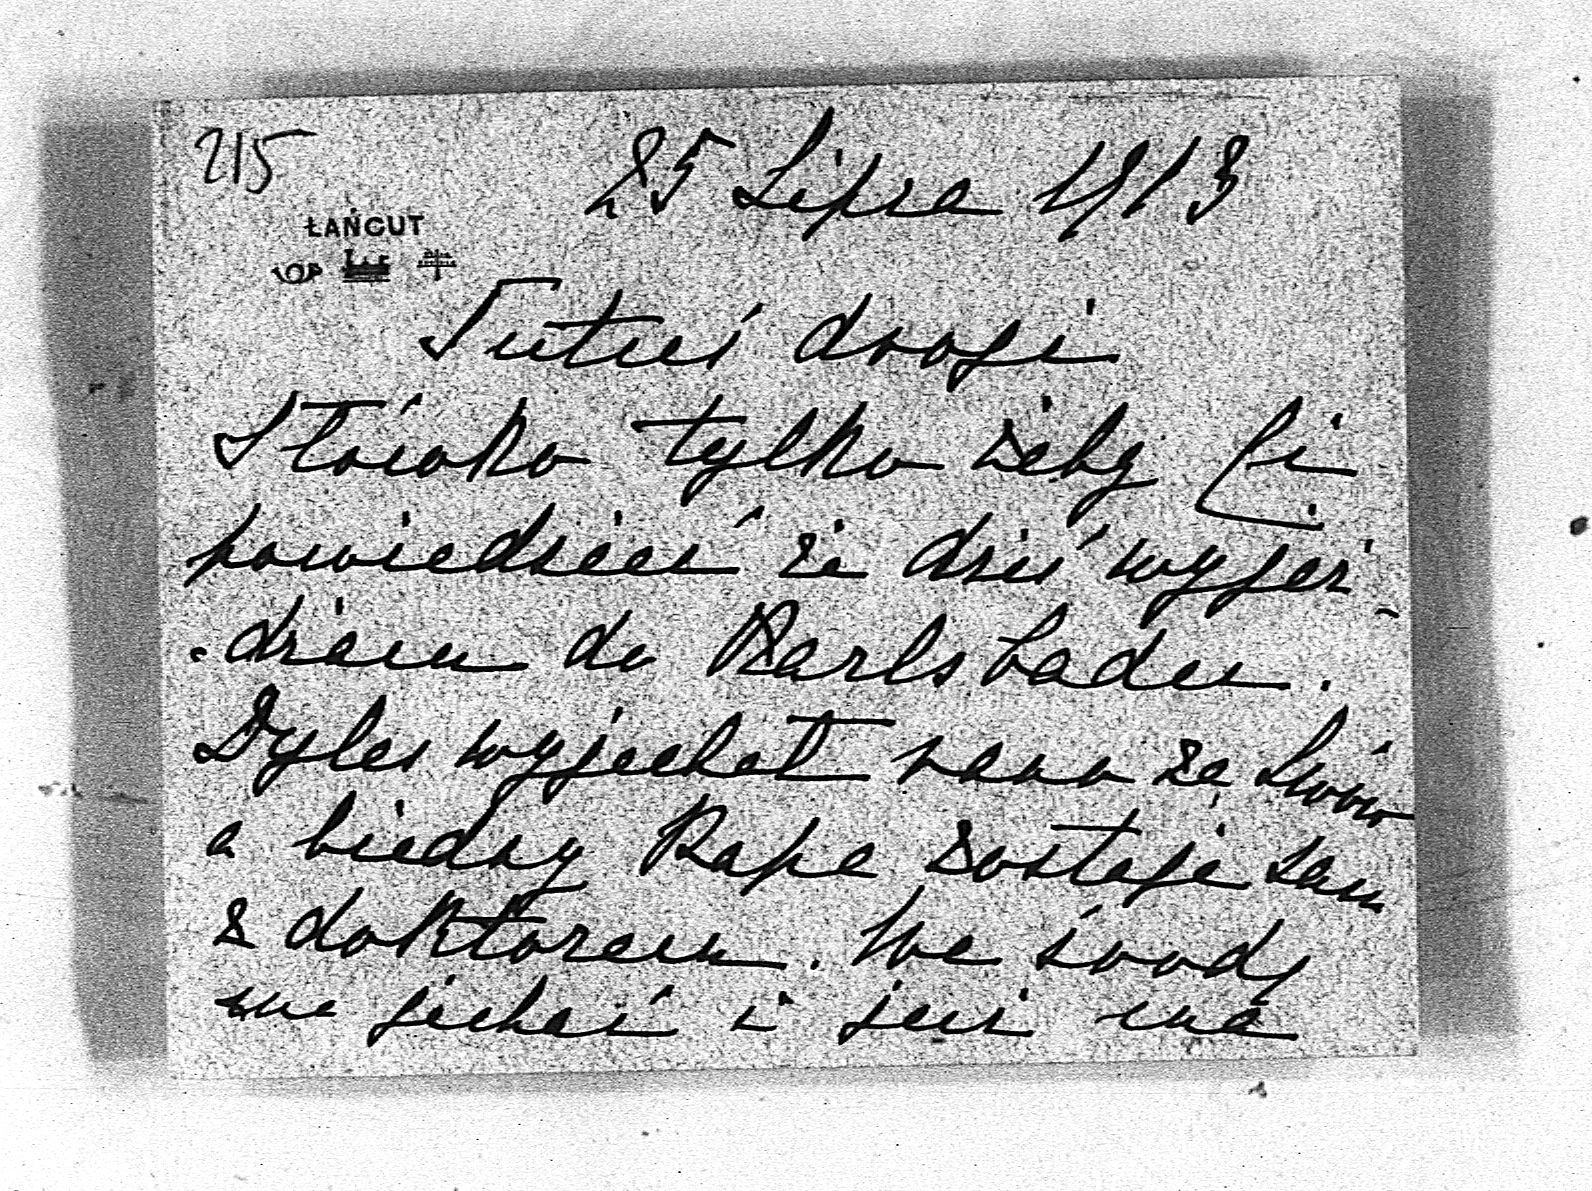 215
25 Lipca 1913
ŁAŃCUT
Tutuś drogi
Słówko tylko żeby Ci
powiedzieć że dziś wyjeż-
-dżam do Karlsbadu.
wyjechał rano za Lwów
a biedny Papa zostaje sam
z doktorem. We środę
ma jechać i już ma